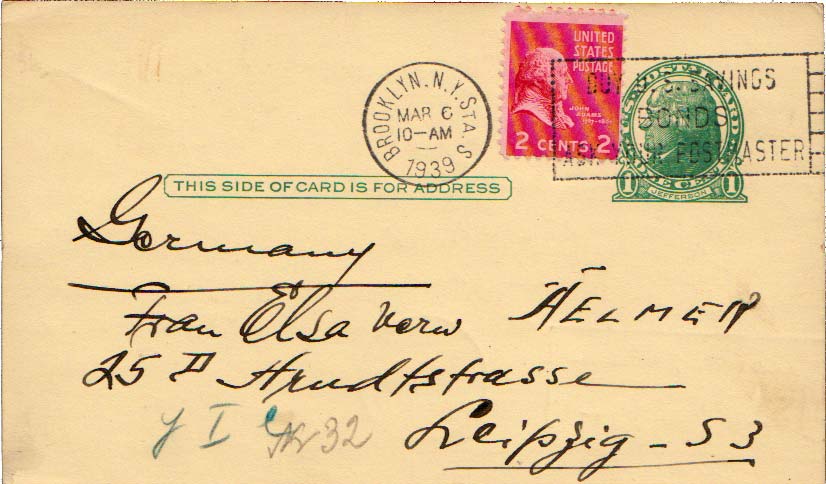 UNITED
STATES
POSTAGE
JOHN
ADAMS
2 CENTS 2
BROOKLYN. N.Y. STA. S
MAR 6
10-AM
1939
BUY U.S. SAVINGS
BONDS
ASK YOUR POSTMASTER
1 1
JEFFERSON
THIS SIDE OF CARD IS FOR ADDRESS
Germany
Frau Elsa verw
25 II Arndtstrasse
Leipzig - S 3
32